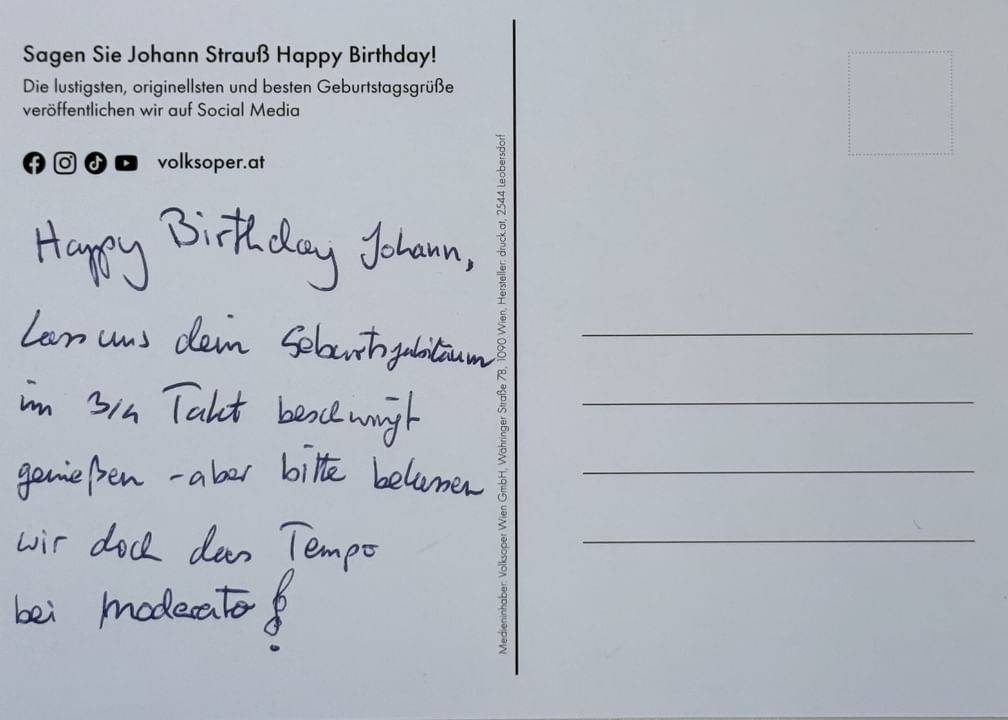 Sagen Sie Johann Strauß Happy Birthday!
Die lustigsten, originellsten und besten Geburtstagsgrüße
veröffentlichen wir auf Social Media
volksoper.at
Happy Birthday Johann,
Lass uns dein Geburtsjubiläum
im 3/4 Takt beschwingt
genießen - aber bitte belassen
wir doch das Tempo
bei moderato!
Medieninhaber: Volksoper Wien GmbH, Währinger Straße 78, 1090 Wien, Hersteller: druck.at, 2544 Leobersdorf